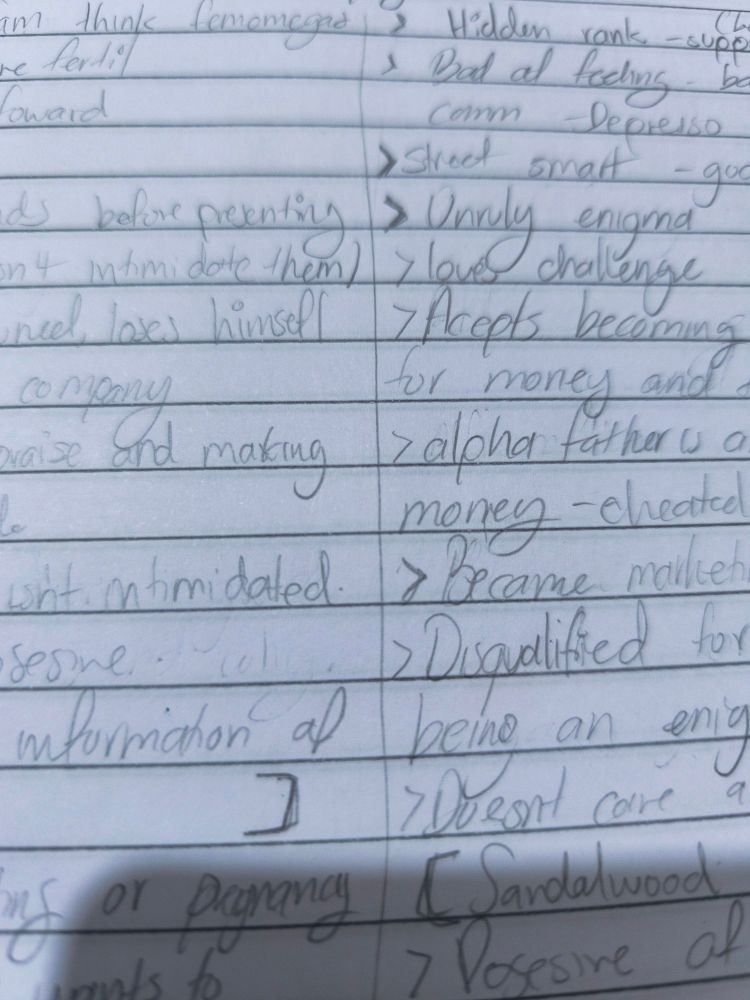 am think femomegas
re fertil
foward
ds before presenting
sn't intimidate them)
loses himself
company
praise and making
isn't intimidated.
information of
]
or pregnancy
wants to
> Hidden rank - supp
> Bad at feeling - ba
comm - Depresso
> street smart - goo
> Unruly enigma
> loves challenge
> Acepts becoming
for money and
> alpha father is a
money - cheated
> Became marketi
> Disqualified for
being an enig
> Doesnt care a
[ Sandalwood
> Posesive of